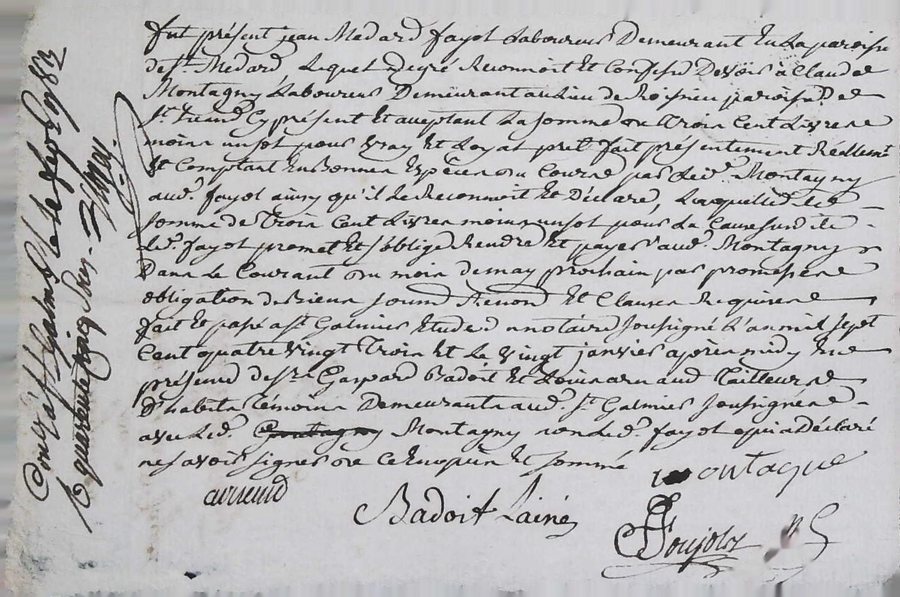 fut présent jean Medard fayol Laboureur Demeurant En La paroisse
de St. Medard Lequel de gré Reconnoit Et Confesse Devoir à Claude
Montagny Laboureur Demeurant au Lieu de
présent Et acceptant La somme de Trois Cent Livres
moins un sol pour vray Et Loyal pret fait présentement Réellemt
Et Comptant En Bonnes Espèces du Cours par Led. Montagny
aud. fayol ainsy qu'il Le Reconnoit Et Déclare, Laquelle de
somme de Trois Cent Livres moins un sol pour La Cause susdite
Led. fayol promet Et s'oblige Rendre Et payer aud. Montagny
Dans Le Courant du mois de may prochain par promesse
obligation de Biens soumis Renond Et Clauses Requises
fait Et passé a St. Galmier Etude du notaire soussigné L'an mil sept
Cent quatre vingt Trois Et Le vingt janvier après midy En
présence de Sr. Gaspard Badoit Et Louis arnaud Tailleur
D'habits Témoins Demeurants aud. St. Galmier soussignés
avec Led. Montagny non Led. fayol qui a Déclaré
ne savoir signer de Ce Enquis Et sommé
montagne
arnaud
Badoit Lainé
Conlé à St. Galmier Le